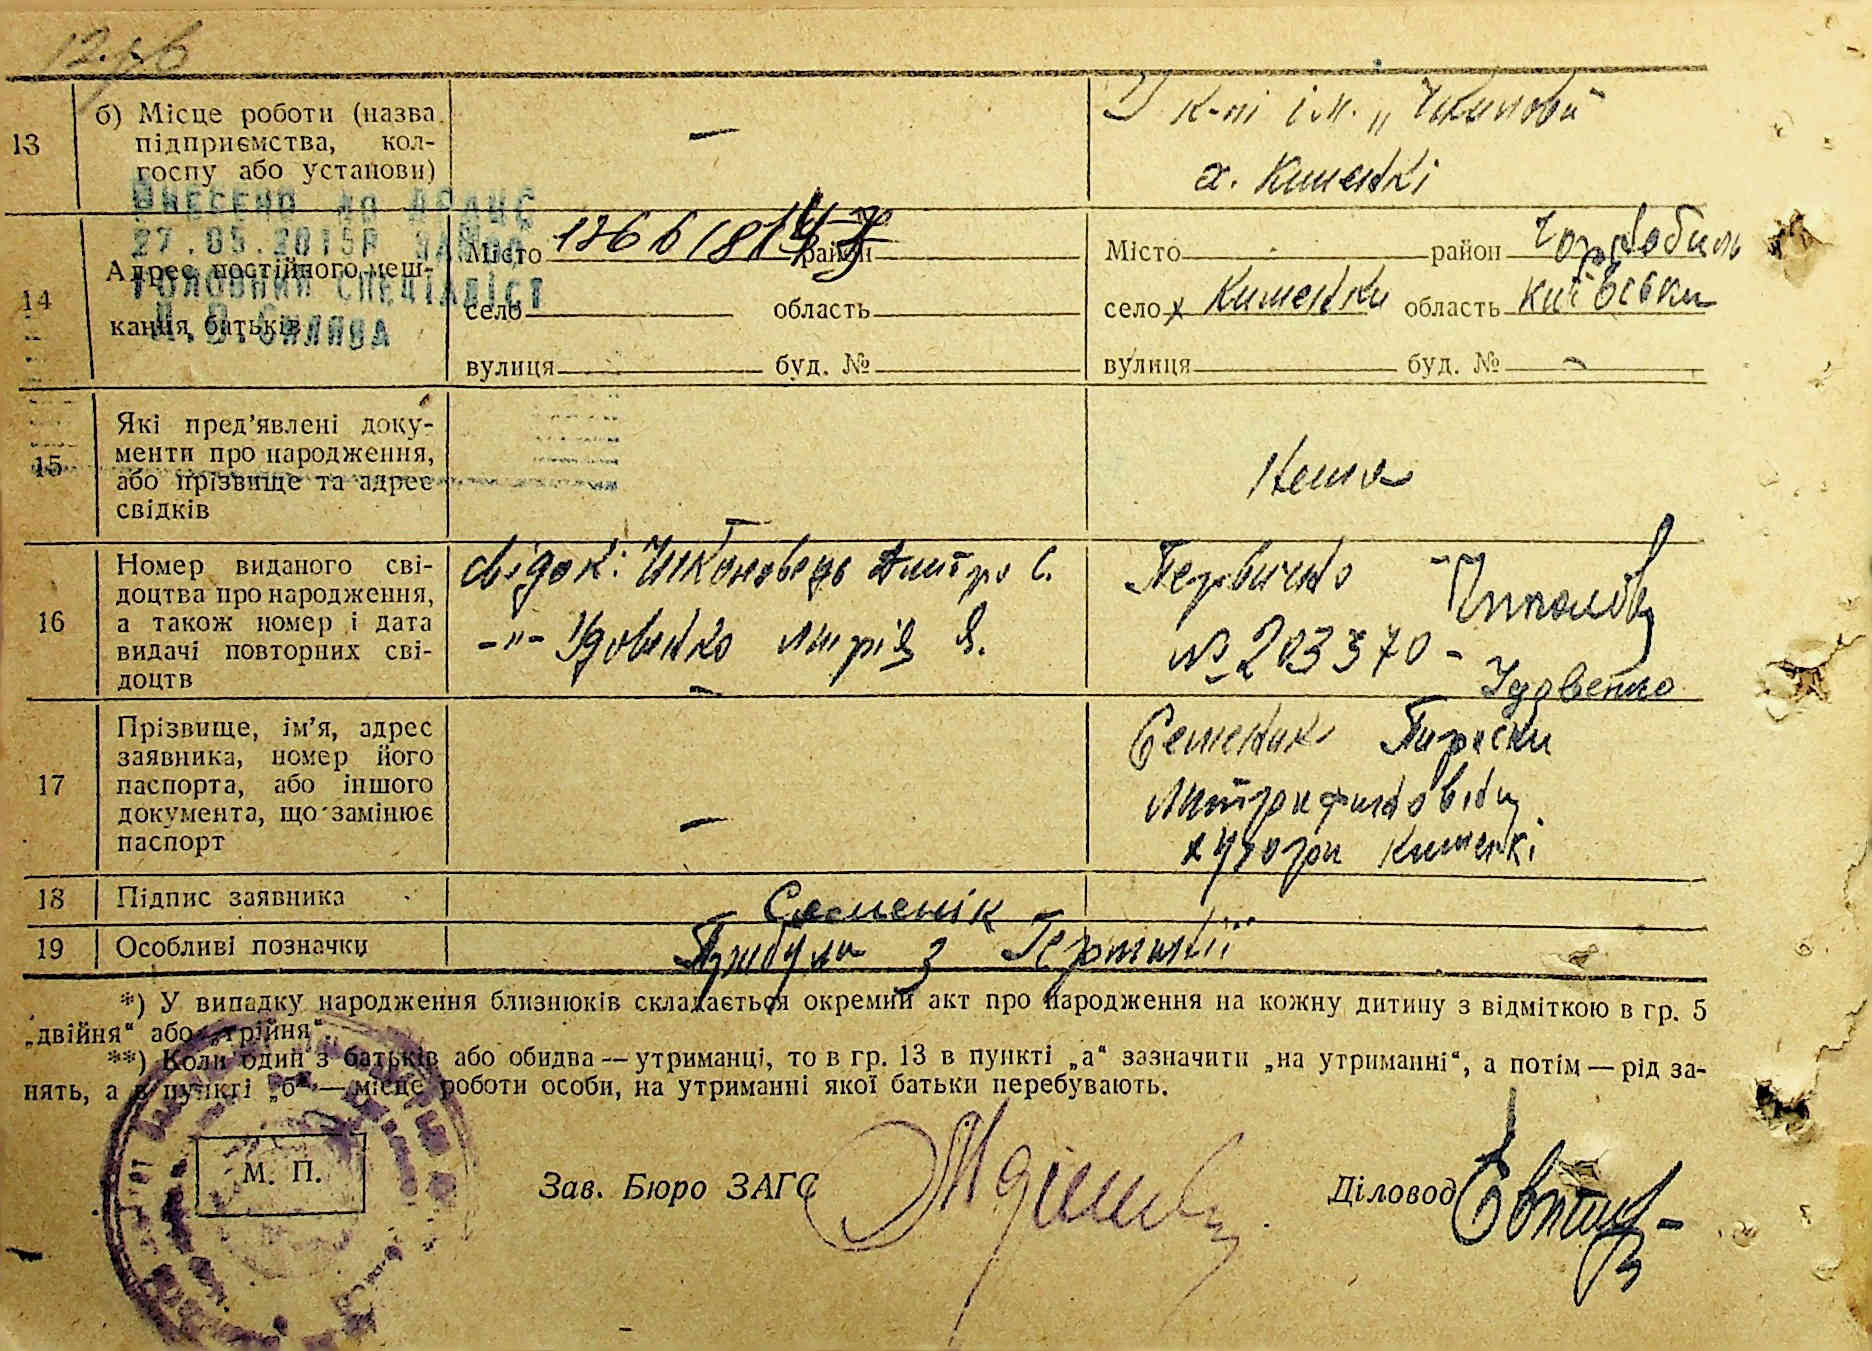 13
б) Місце роботи (назва
підприємства, кол-
госпу або установи)
—
У к-пі ім. „
х. Кишенкі
ВНЕСЕНО ДО ДРАЦС
27.05.2015Р
ГОЛОВНИЙ СПЕЦІАЛІСТ
14
Адрес постійного меш-
кання батьків
Місто район
село область
вулиця буд. №
Місто район Чорнобиль
село х Кишенки область київськи
вулиця буд. № —
15
Які пред’явлені доку-
менти про народження,
або прізвище та адрес
свідків
—
Нема
16
Номер виданого сві-
доцтва про народження,
а також номер і дата
видачі повторних сві-
доцтв
свідок: Дмитро С.
-"- Удовенко Марія Я.
Первичне
№ 203370 -
17
Прізвище, ім’я, адрес
заявника, номер його
паспорта, або іншого
документа, що замінює
паспорт
—
Семеник Параски
Митрофановни
хутори Кишенкі
18
Підпис заявника
Семенік
19
Особливі позначки
Прибула з Германії
*) У випадку народження близнюків складається окремий акт про народження на кожну дитину з відміткою в гр. 5
„двійня“ або „трійня“.
**) Коли один з батьків або обидва — утриманці, то в гр. 13 в пункті „а“ зазначити „на утриманні“, а потім — рід за-
нять, а в пункті „б“ — місце роботи особи, на утриманні якої батьки перебувають.
М. П.
Зав. Бюро ЗАГС
Діловод